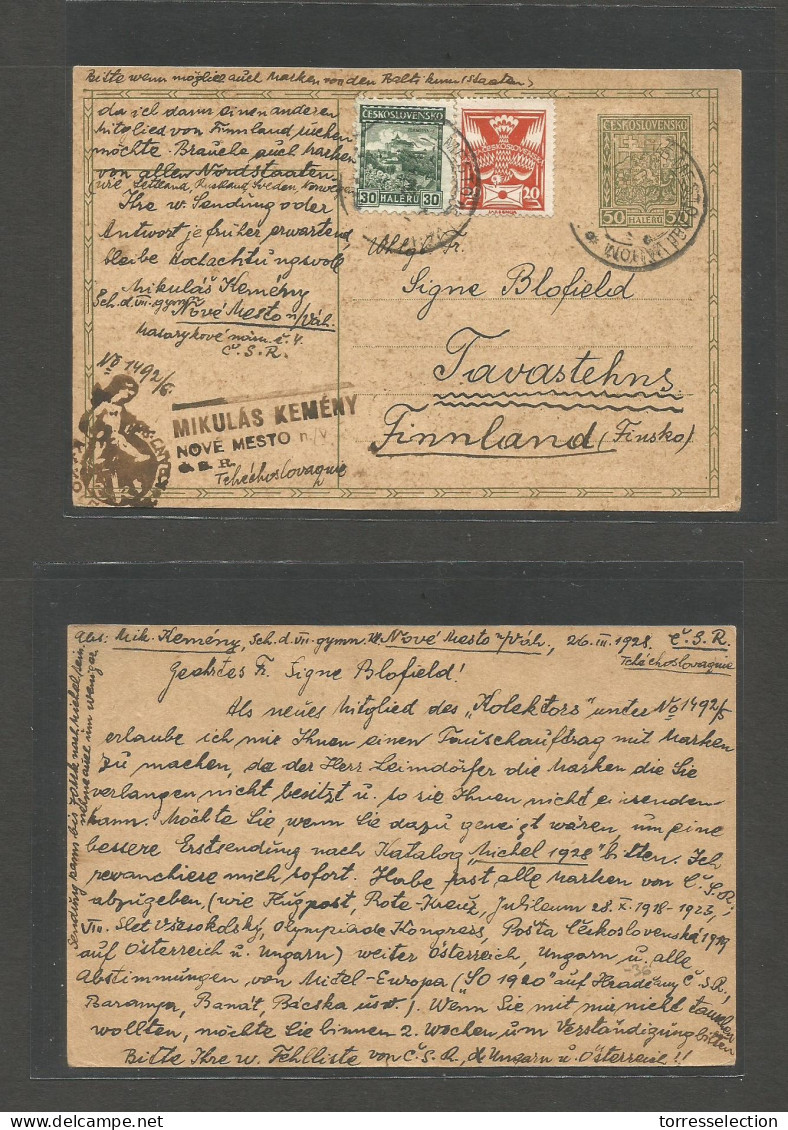 Bitte wenn möglich auch Marken von den Baltikum(staaten)
da ich dann einen anderen
Mitglied von Finnland suchen
möchte. Brauche auch Marken
von allen Nordstaaten
wie Lettland, Russland, Sveden Norwegen
Ihre w. Sendung oder
Antwort je früher erwartend
bleibe Hochachtungsvoll
Mikuláš Kemény
Sch. d. VII. gymn.
Nové Mesto n/Váh.
Masarykové nám. č. 4.
Č. S. R.
No 1492/5.
ČESKOSLOVENSKO
30 HALÉŘŮ 30
ČESKOSLOVENSKÁ
20
ČESKOSLOVENSKO
50 HALÉŘŮ 50
NOVÉ MESTO NAD VÁHOM
Signe Blofield
Tavastehns
Finnland (Finsko)
MIKULÁS KEMÉNY
NOVÉ MESTO n/V
Č. S. R.
Tchéchoslovaquie
Abs: Mik. Kemény, Sch. d. VII. gymn. Nové Mesto n/Váh., 26. III. 1928. Č. S. R.
Tchéchoslovaquie
Geehrtes Fr. Signe Blofield!
Als neues Mitglied des „Kolektors" unter No 1492/5
erlaube ich mir Ihnen einen Tauschauftrag mit Marken
zu machen, da der Herr Leimdörfer die Marken die Sie
verlangen nicht besitzt u. so sie Ihnen nicht einsenden
kann. Möchte Sie, wenn Sie dazu geneigt wären, um eine
bessere Erstsendung nach Katalog „Michel 1928" bitten. Ich
revanchiere mich sofort. Habe fast alle Marken von Č.S.R.
abzugeben, (wie Flugpost, Rote-Kreuz, Jubileum 28. X. 1918-1923,
VIII. Slet Všesokolský, Olympiade Kongress, Posta Československá 1919
auf Österreich u. Ungarn) weiter Österreich, Ungarn u. alle
Abstimmungen von Mitel-Europa („SO 1920" auf Hradčany Č.S.R,
Baranya, Banát, Bácska usw.). Wenn Sie mit mir nicht tauschen
wollten, möchte Sie binnen 2. Wochen um Verständigung bitten
Bitte Ihre w. Fehlliste von Č. S. R., Ungarn u. Österreich!!
-36
torresselection